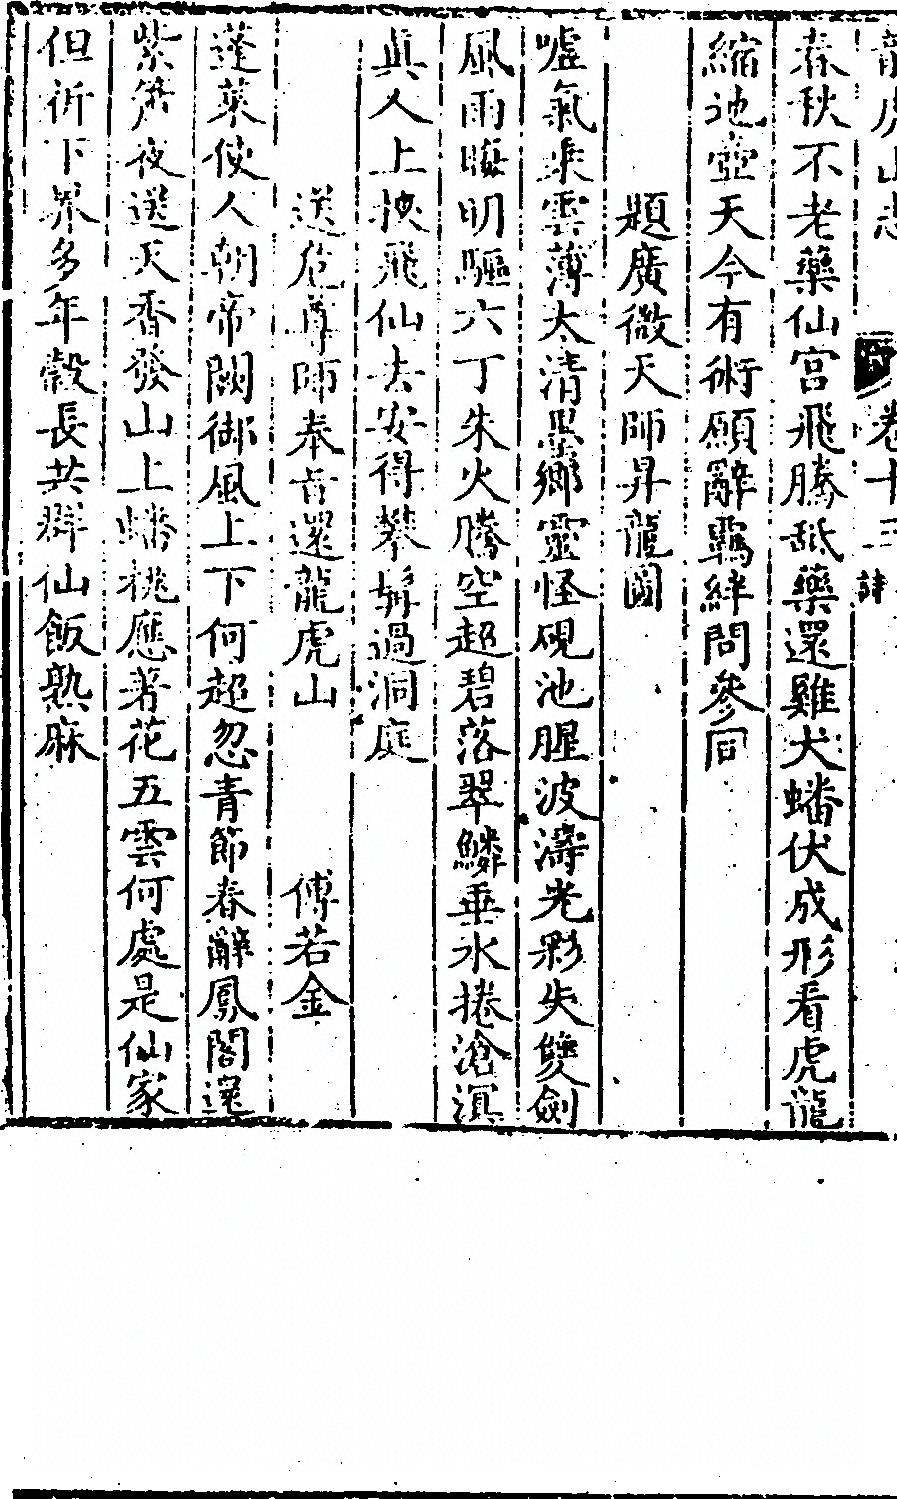 龍虎山志 卷十三 詩
春秋不老藥仙宮飛騰舐藥還雞犬蟠伏成形看虎龍
縮地壺天今有術願辭羈絆問參同
題廣微天師昇龍圖
噓氣乘雲薄太清墨鄉靈怪硯池腥波濤光彩失雙劍
風雨晦明驅六丁朱火騰空超碧落翠鱗垂水捲滄溟
真人上挾飛仙去安得攀髯過洞庭
送危尊師奉旨還龍虎山 傅若金
蓬萊使人朝帝闕御風上下何超忽青節春辭鳳閣還
紫簫夜送天香發山上蟠桃應著花五雲何處是仙家
但祈下界多年穀長共群仙飯熟麻